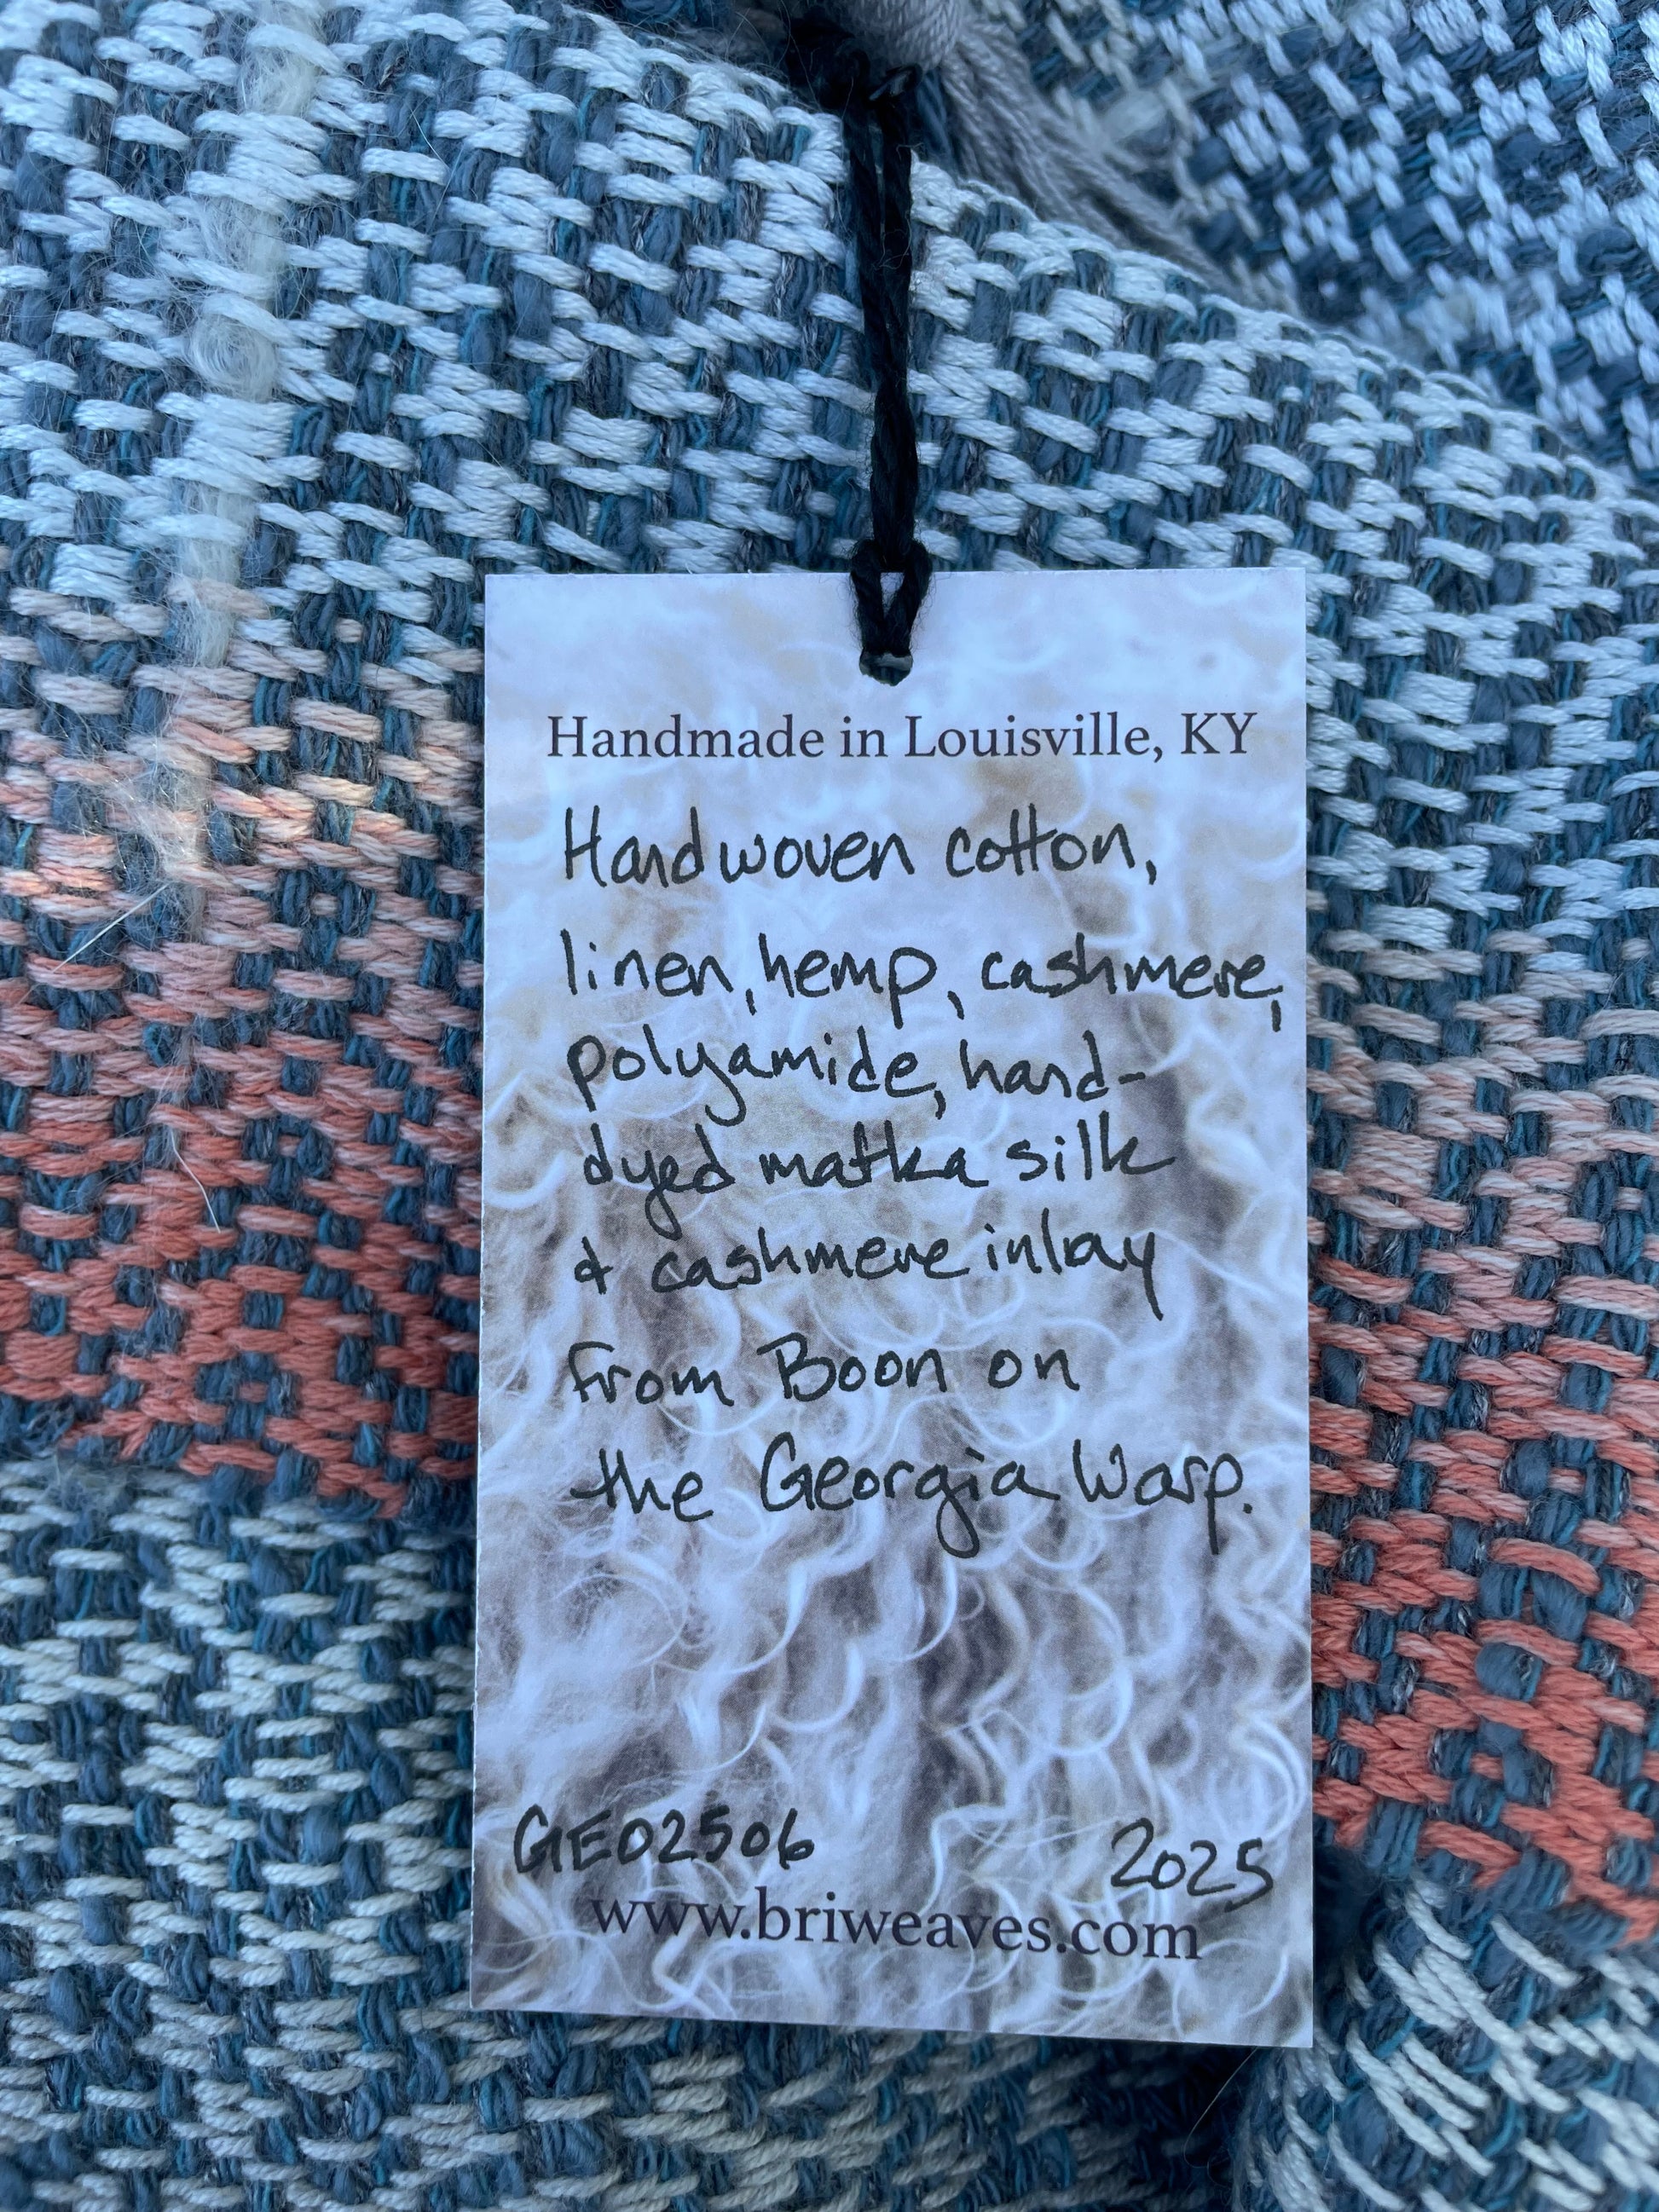 Handmade in Louisville, KY
Handwoven cotton,
linen, hemp, cashmere,
polyamide, hand-
dyed matka silk
& cashmere inlay
from Boon on
the Georgia Warp.
GEO2506 2025
www.briweaves.com